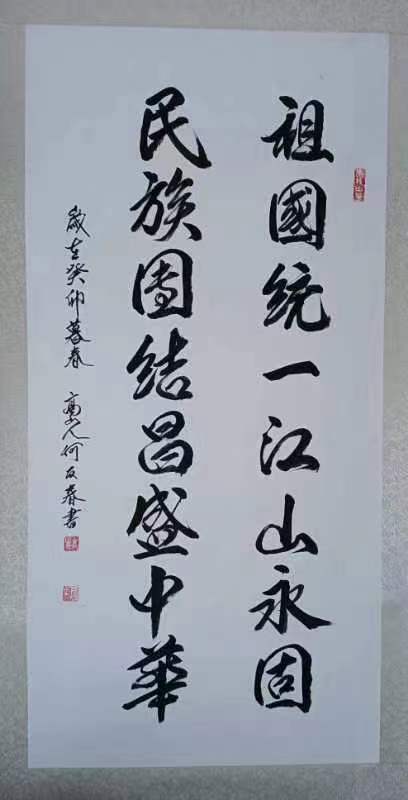 祖國統一江山永固
民族團结昌盛中華
歲在癸卯暮春 高山人何友春書